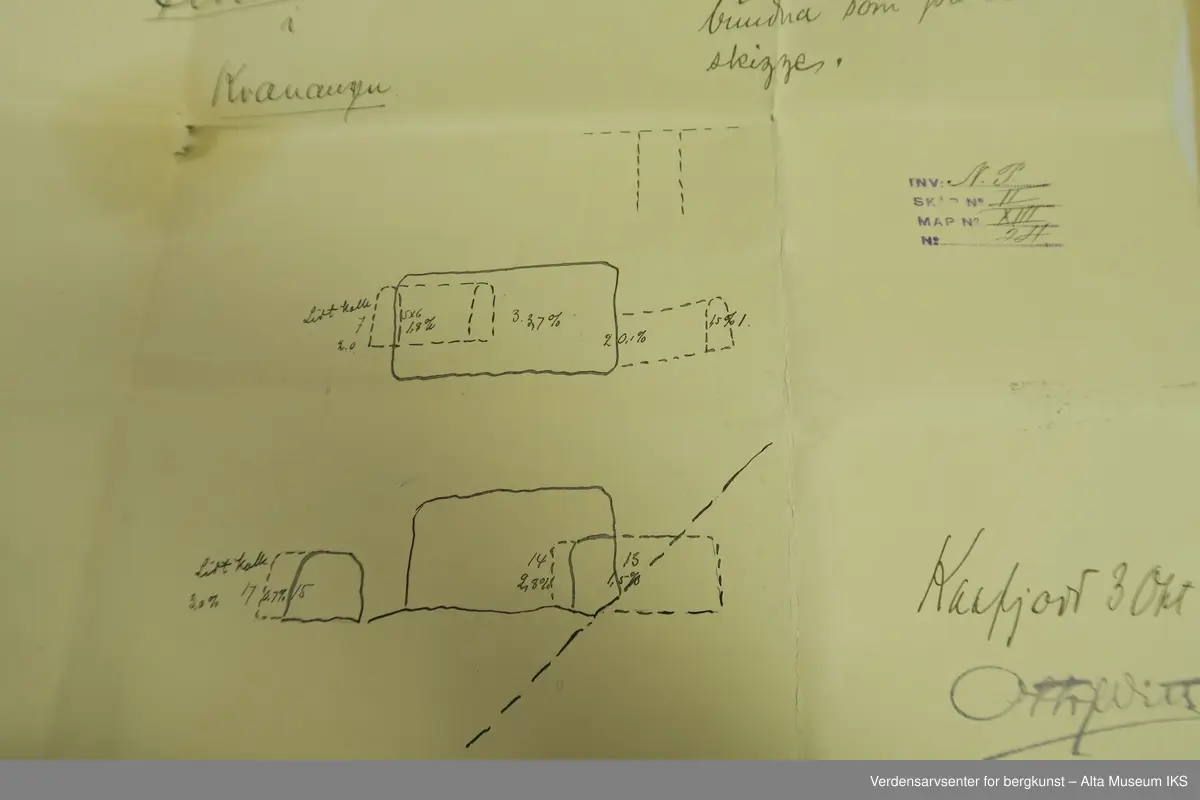 i
Kvænangen
bundna som på
skizze.
INV: N. P.
SKAP Nº II
MAP Nº XIII
Nº 24
List kalk
7
2.0
5x6
1,8%
3. 3,7%
2 0,1%
1,5% 1.
List kalk
3,0%
17
2,7%
15
14
2,8%
13
1,5%
Kaafjord 3 Okt
Otto Witt
Verdensarvsenter for bergkunst – Alta Museum IKS